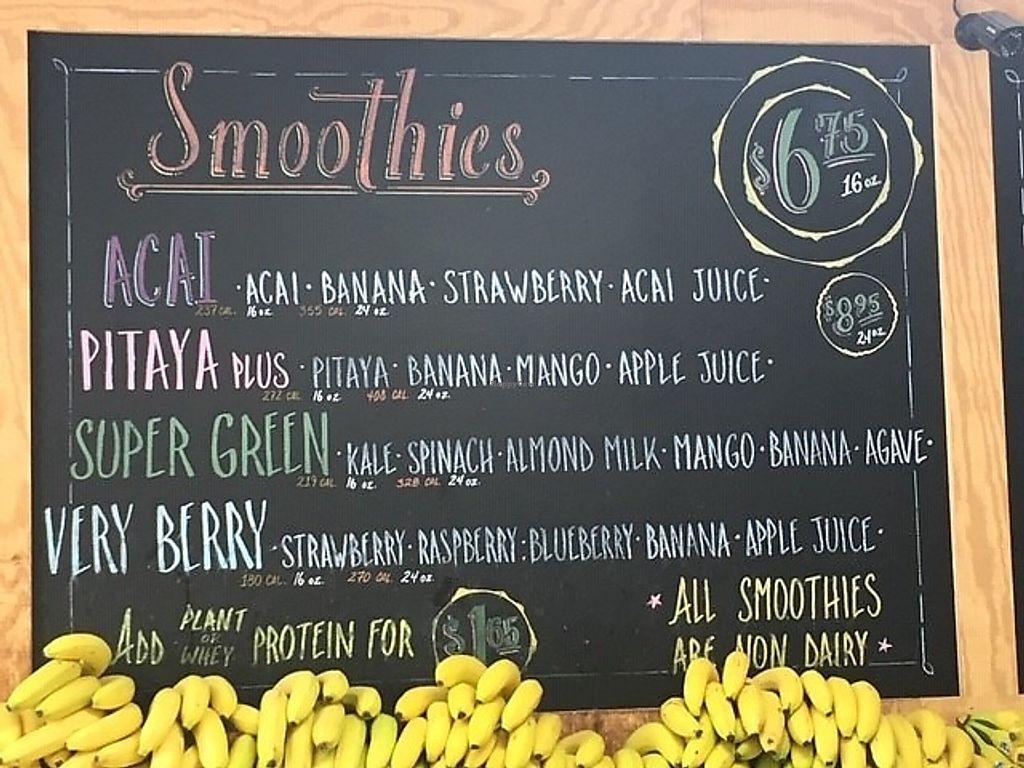 Smoothies
$6 75
16 oz.
ACAI · ACAI · BANANA · STRAWBERRY · ACAI JUICE ·
237 CAL. 16 oz. 355 CAL. 24 oz.
$8 95
24 oz
PITAYA PLUS · PITAYA · BANANA · MANGO · APPLE JUICE ·
272 CAL. 16 oz. 408 CAL. 24 oz.
SUPER GREEN · KALE · SPINACH · ALMOND MILK · MANGO · BANANA · AGAVE ·
219 CAL. 16 oz. 328 CAL. 24 oz.
VERY BERRY · STRAWBERRY · RASPBERRY · BLUEBERRY · BANANA · APPLE JUICE ·
180 CAL. 16 oz. 270 CAL. 24 oz.
ADD PLANT OR WHEY PROTEIN FOR $1 65
* ALL SMOOTHIES
ARE NON DAIRY *